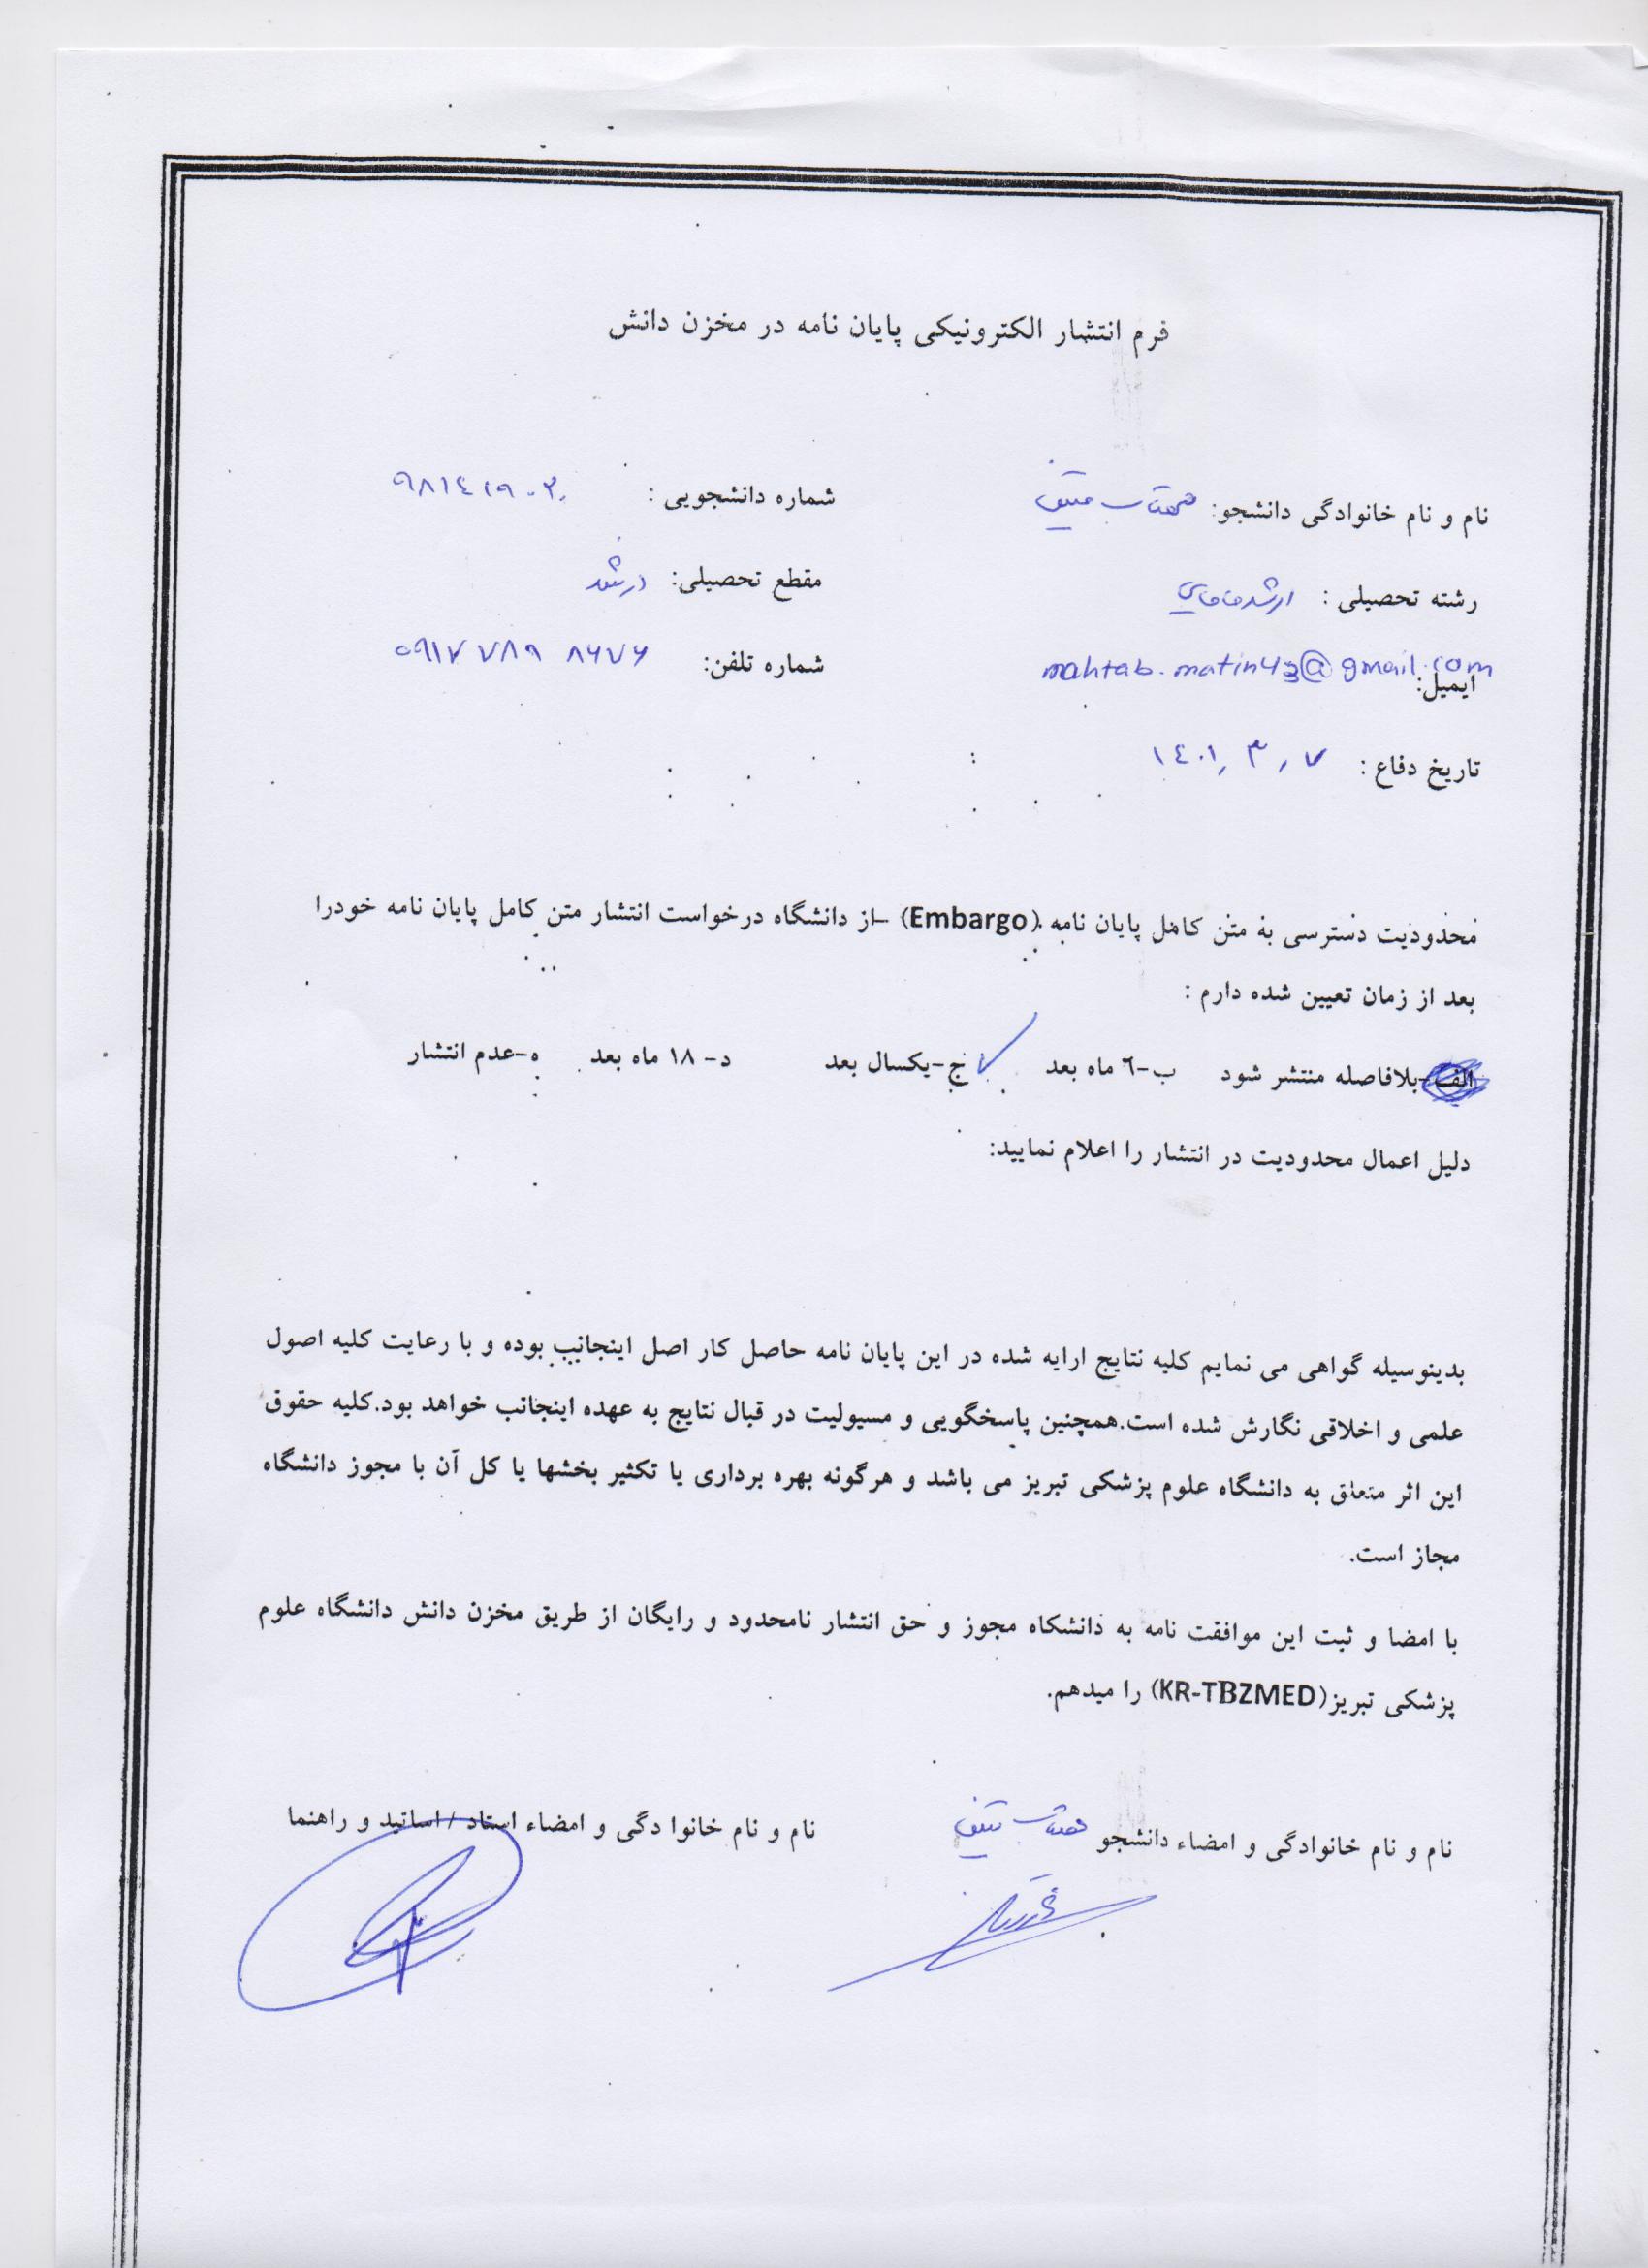 فرم انتشار الکترونیکی پایان نامه در مخزن دانش
نام و نام خانوادگی دانشجو: مهتاب متین شماره دانشجویی : ۹۸۱٤۱۹۰۲۰
رشته تحصیلی : ارشد مامایی مقطع تحصیلی: ارشد
ایمیل: mahtab.matin43@gmail.com شماره تلفن: ۰۹۱۷۷۸۹۸۶۷۶
تاریخ دفاع : ۱٤۰۱,۳,۷
محدودیت دسترسی به متن کامل پایان نامه (Embargo) –از دانشگاه درخواست انتشار متن کامل پایان نامه خودرا
بعد از زمان تعیین شده دارم :
الف-بلافاصله منتشر شود ب-٦ ماه بعد ج-یکسال بعد د- ۱۸ ماه بعد ه-عدم انتشار
دلیل اعمال محدودیت در انتشار را اعلام نمایید:
بدینوسیله گواهی می نمایم کلیه نتایج ارایه شده در این پایان نامه حاصل کار اصل اینجانب بوده و با رعایت کلیه اصول
علمی و اخلاقی نگارش شده است.همچنین پاسخگویی و مسیولیت در قبال نتایج به عهده اینجانب خواهد بود.کلیه حقوق
این اثر متعلق به دانشگاه علوم پزشکی تبریز می باشد و هرگونه بهره برداری یا تکثیر بخشها یا کل آن با مجوز دانشگاه
مجاز است.
با امضا و ثبت این موافقت نامه به دانشکاه مجوز و حق انتشار نامحدود و رایگان از طریق مخزن دانش دانشگاه علوم
پزشکی تبریز(KR-TBZMED) را میدهم.
نام و نام خانوادگی و امضاء دانشجو مهتاب متین نام و نام خانوا دگی و امضاء استاد /اساتید و راهنما